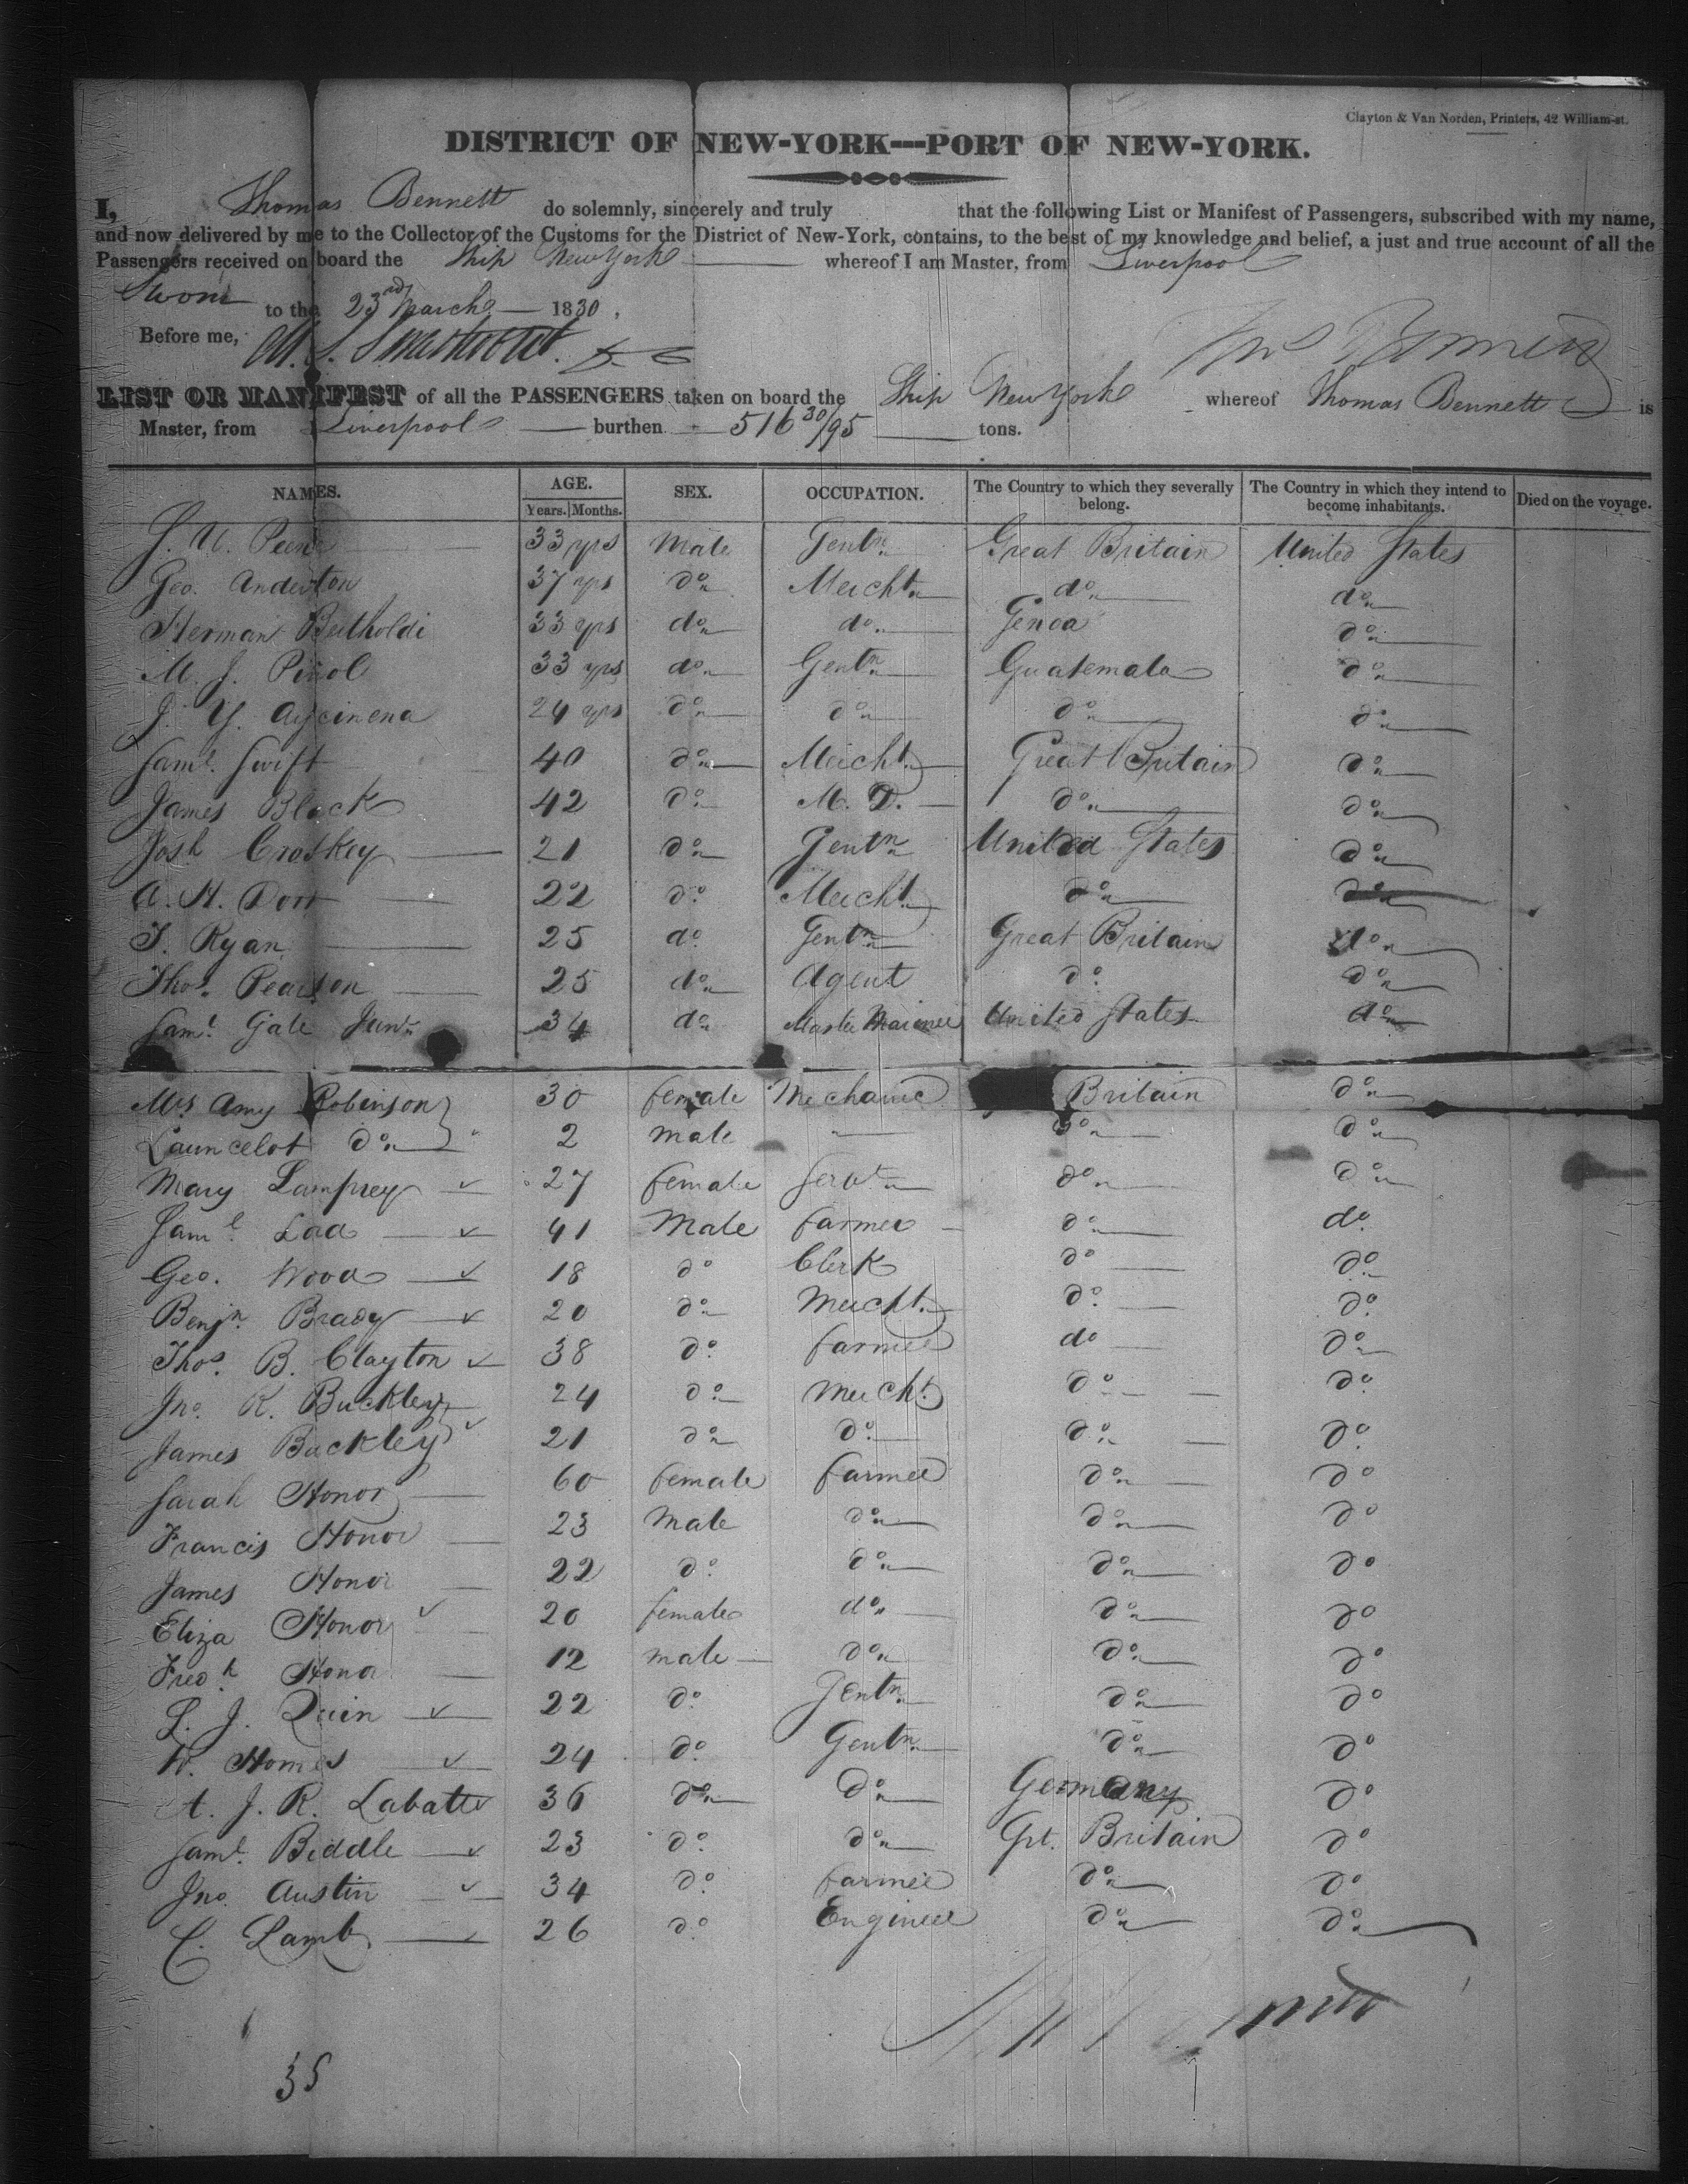 Clayton & Van Norden, Printers, 42 William-st.
DISTRICT OF NEW-YORK---PORT OF NEW-YORK.
I, Thomas Bennett do solemnly, sincerely and truly that the following List or Manifest of Passengers, subscribed with my name,
and now delivered by me to the Collector of the Customs for the District of New-York, contains, to the best of my knowledge and belief, a just and true account of all the
Passengers received on board the Ship New York whereof I am Master, from Liverpool
Sworn to the 23rd March 1830.
Before me,
Thos Bennett
LIST OR MANIFEST of all the PASSENGERS taken on board the Ship New York whereof Thomas Bennett is
Master, from Liverpool burthen 516 30/95 tons.
NAMES. AGE. SEX. OCCUPATION. The Country to which they severally belong. The Country in which they intend to become inhabitants. Died on the voyage.
Years. Months.
33 yrs Male Gentn Great Britain United States
Geo. Anderton 37 yrs do Mercht do do
Herman Bertholdi 33 yrs do do Genoa do
M. J. Piñol 33 yrs do Gentn Guatemala do
J. Y. Aycinena 24 yrs do do do do
Saml. Swift 40 do Mercht Great Britain do
James Black 42 do M. D. do do
Josh Croskey 21 do Gentn United States do
A. H. Dorr 22 do Mercht do do
T. Ryan 25 do Gentn Great Britain do
Thos. Pearson 25 do Agent do do
Saml. Gale Junr 34 do Master Mariner United States do
Mrs Amy Robinson 30 female Mechanic Britain do
Launcelot do 2 male — do do
Mary Lamprey 27 female Servt do do
Saml Lad 41 Male farmer do do
Geo. Wood 18 do Clerk do do
Benjn. Brady 20 do Mercht do do
Thos. B. Clayton 38 do farmer do do
Jno. R. Buckley 24 do Mercht do do
James Buckley 21 do do do do
Sarah Honor 60 female farmer do do
Francis Honor 23 Male do do do
James Honor 22 do do do do
Eliza Honor 20 female do do do
Fredk Honor 12 male do do do
J. Quin 22 do Gentn do do
W. Homes 24 do Gentn do do
A. J. R. Labatte 36 do do Germany do
Saml. Biddle 23 do do Grt. Britain do
Jno. Austin 34 do farmer do do
C. Lamb 26 do Engineer do do
35